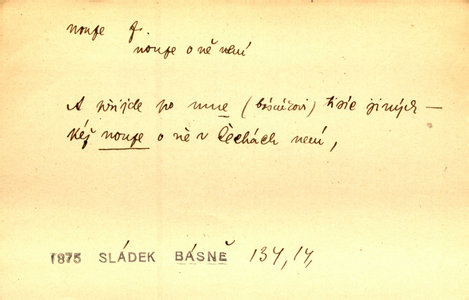 nouze f.
nouze o ně není
A přijde po mne (básníkovi) tisíc jiných —
kéž nouze o ně v Čechách není,
1875 SLÁDEK BÁSNĚ 134, 14,